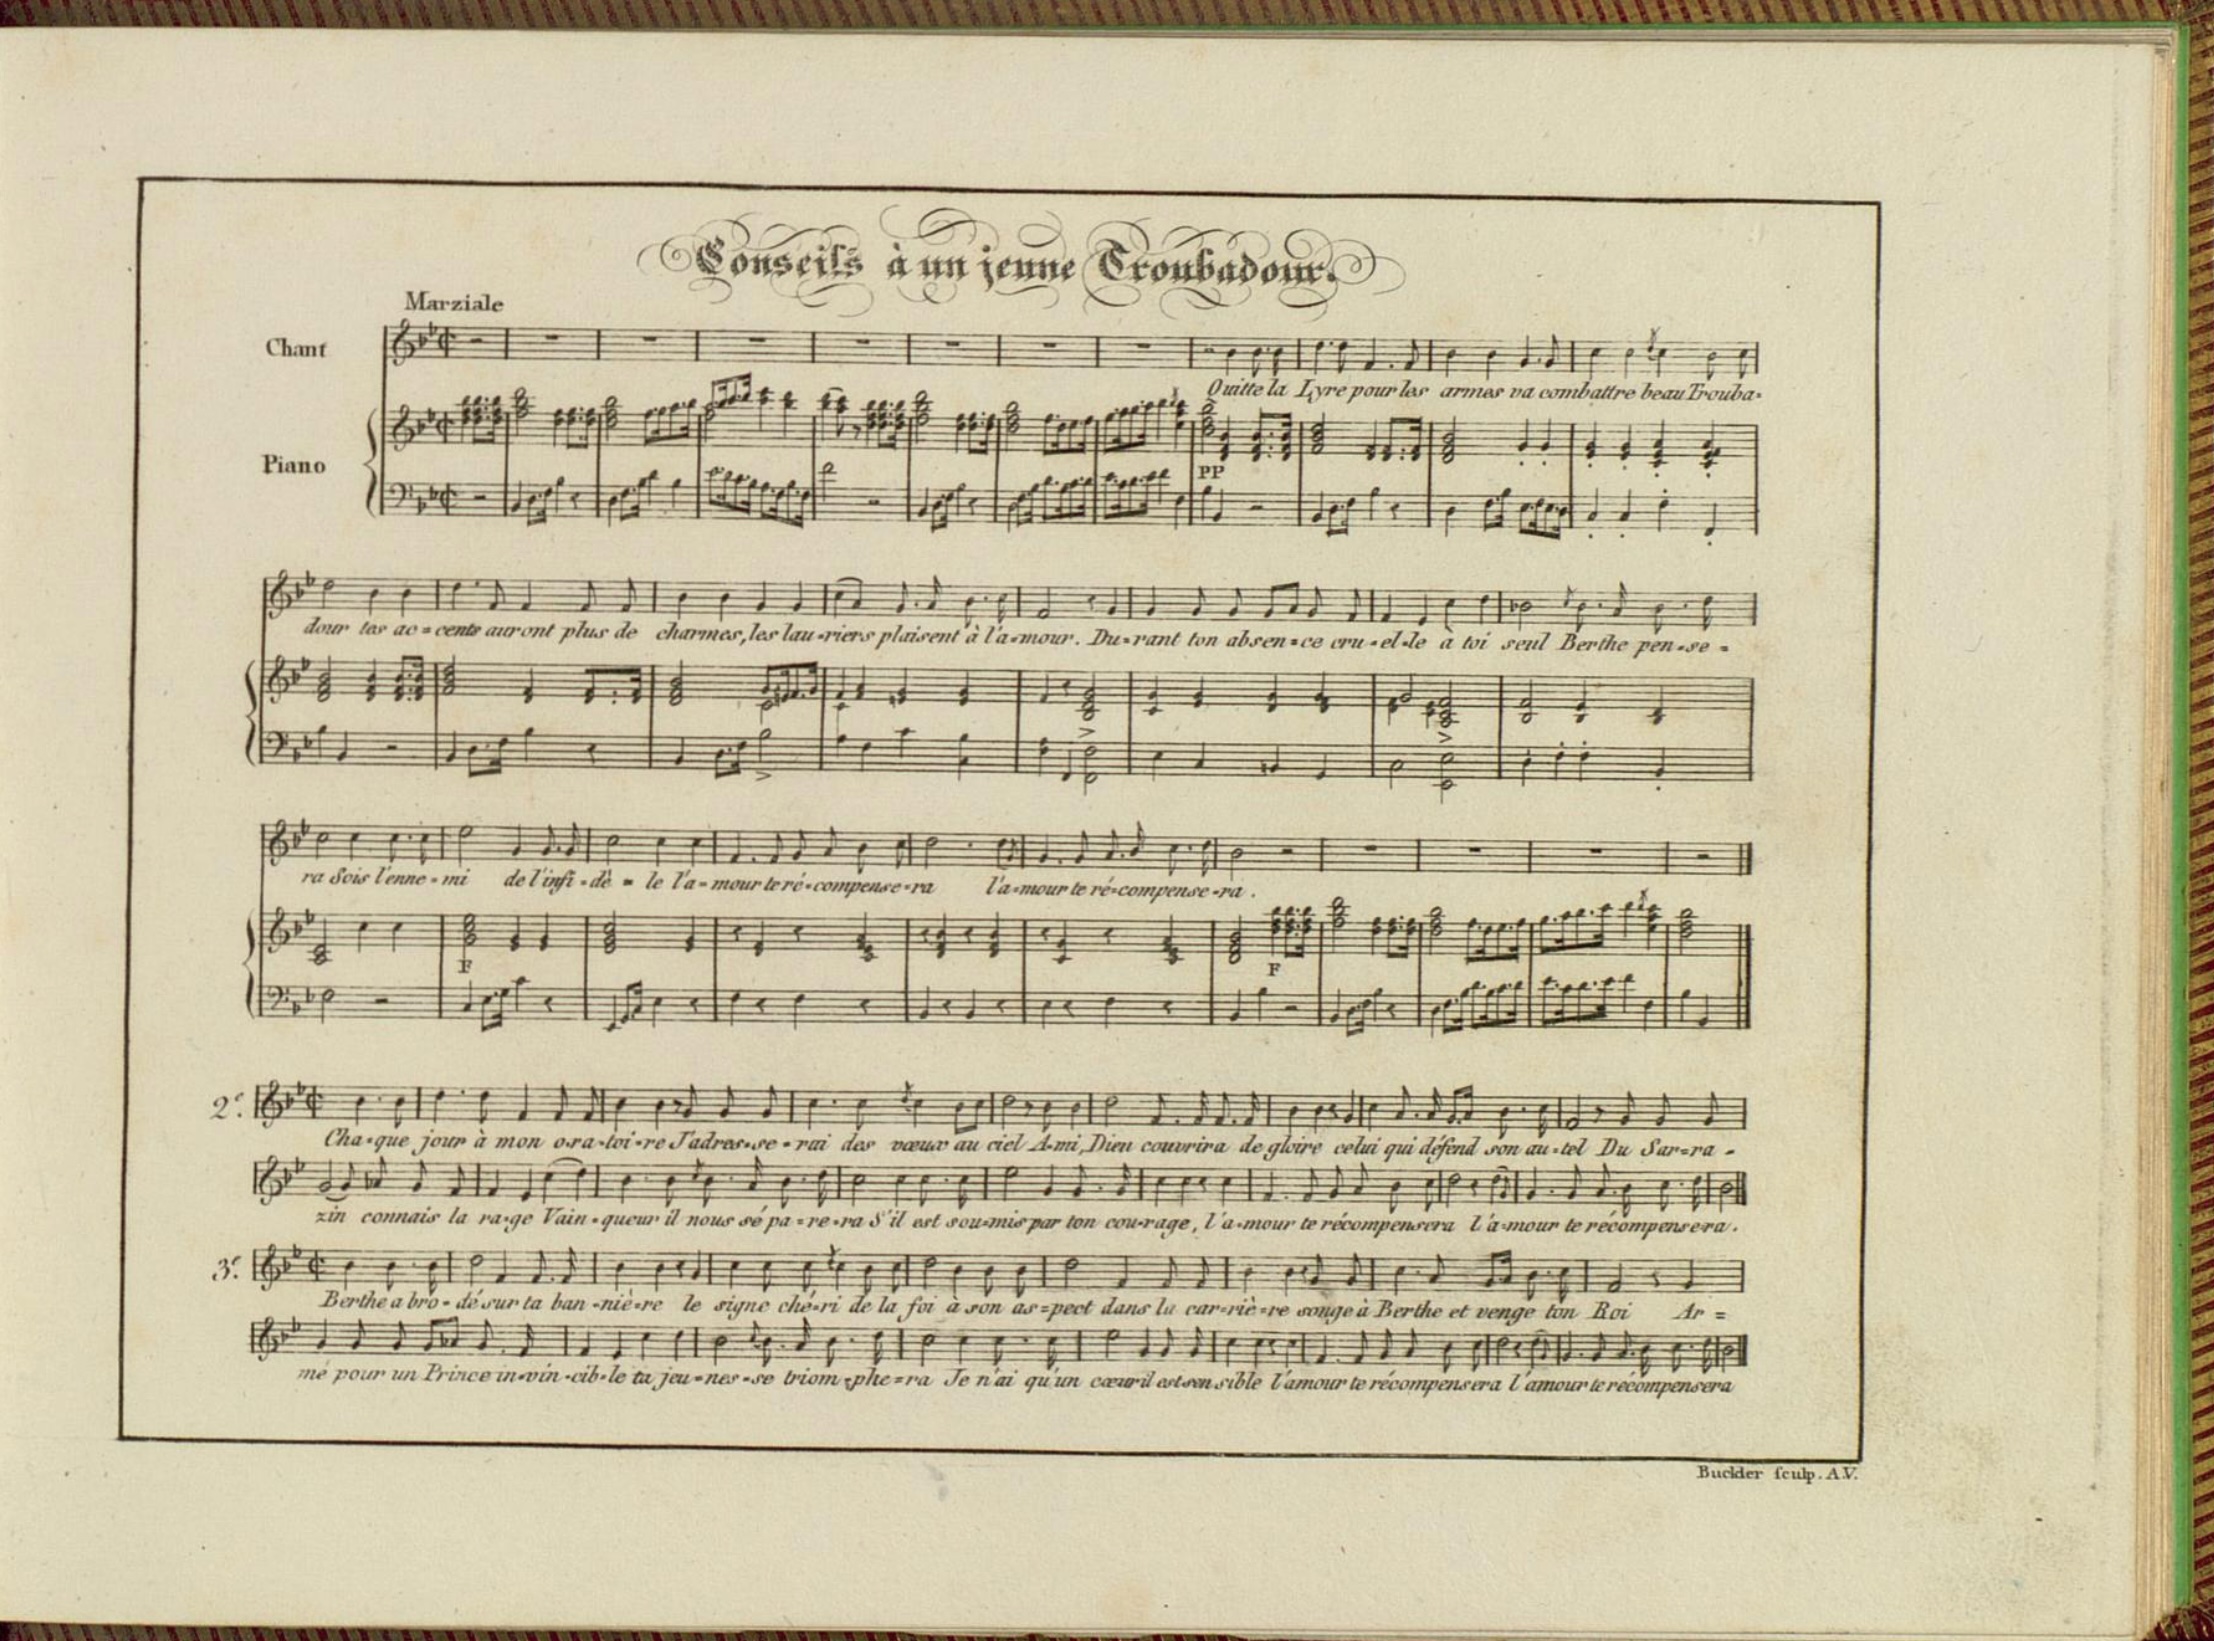 Conseils à un jeune Troubadour.
Marziale
Chant
Quitte la Lyre pour les armes va combattre beau Trouba-
Piano
PP
dour tes ac=cents auront plus de charmes, les lau-riers plaisent à l'a=mour. Du=rant ton absen=ce cru-el-le à toi seul Berthe pen-se=
ra Sois l'enne-mi de l'infi-dè=le l'a-mour te ré-compense-ra l'a-mour te ré-compense-ra.
F
F
2.e
Cha-que jour à mon o-ra-toi-re J'adres-se-rai des vœux au ciel A-mi, Dieu couvrira de gloire celui qui défend son au-tel Du Sar=ra-
zin connais la ra-ge Vain-queur il nous sé pa-re-ra S'il est sou-mis par ton cou-rage, l'a-mour te récompensera l'a-mour te récompense-ra.
3.e
Berthe a bro-dé sur ta ban-niè-re le signe ché-ri de la foi à son as=pect dans la car-riè-re songe à Berthe et venge ton Roi Ar=
mé pour un Prince in-vin-cib-le ta jeu-nes-se triom-phe-ra Je n'ai qu'un cœur il est sensible l'amour te récompensera l'amour te récompensera
Buckler sculp. A.V.